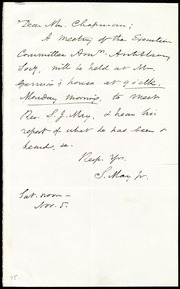 Dear Mr. Chapman;
A meeting of the Executive
Committee Am. Antislavery
Socy. will be held at Mr.
Garrison's house at 9 o'clk.
Monday morning, to meet
Rev. S. J. May, & hear his
report of what he has seen &
heard, &c.
Resp. Yrs.
S. May, Jr.
Sat. noon—
Nov. 5.